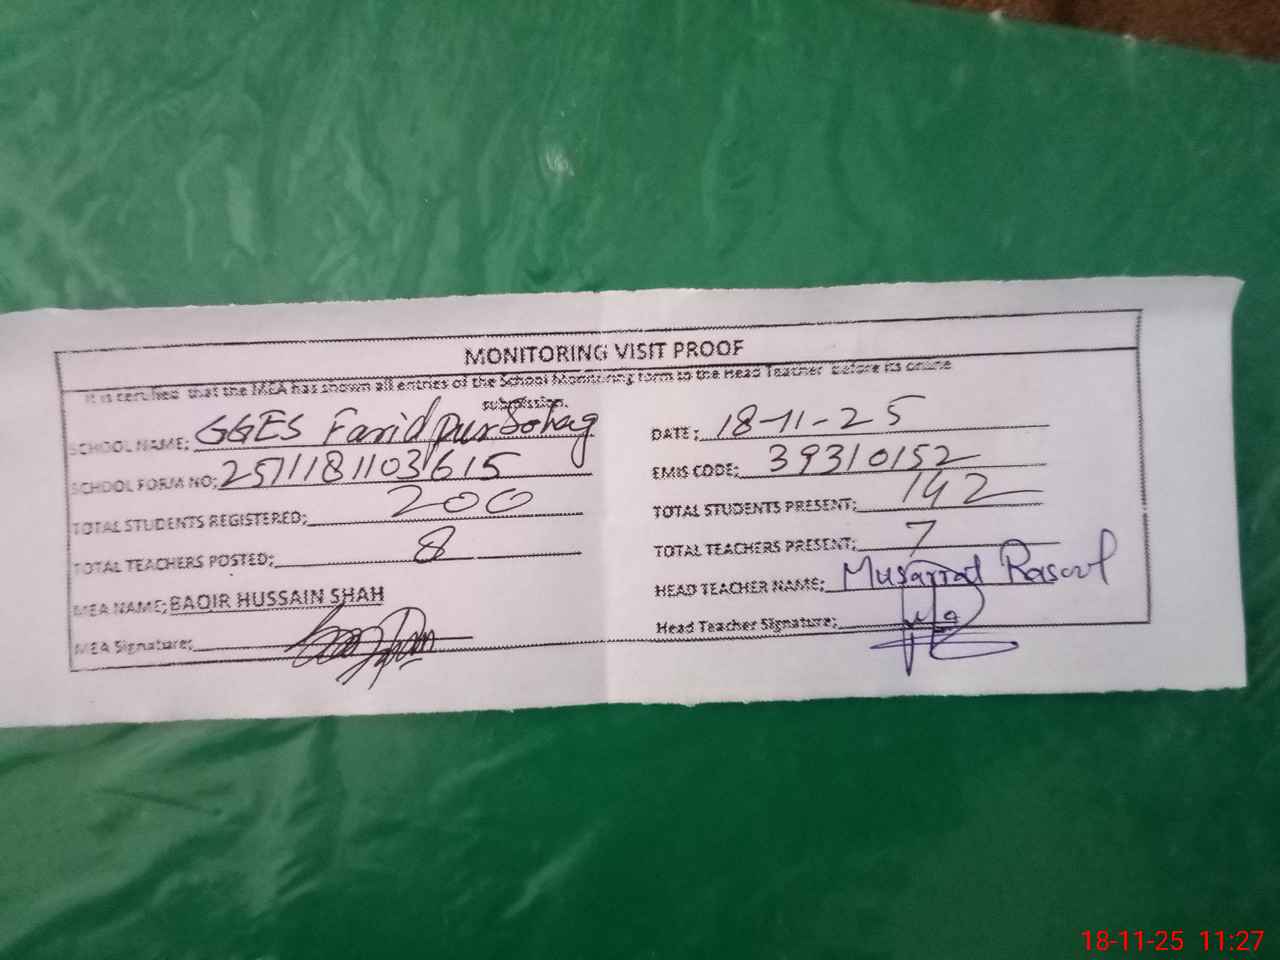 MONITORING VISIT PROOF
It is certified that the MEA has shown all entries of the School Monitoring form to the Head Teacher before its online
submission.
SCHOOL NAME: GGES Faridpur Sohag DATE: 18-11-25
SCHOOL FORM NO: 2511181103615 EMIS CODE: 39310152
TOTAL STUDENTS REGISTERED: 200 TOTAL STUDENTS PRESENT: 142
TOTAL TEACHERS POSTED: 8 TOTAL TEACHERS PRESENT: 7
MEA NAME: BAQIR HUSSAIN SHAH HEAD TEACHER NAME: Musarrat Rasool
MEA Signature: Head Teacher Signature:
18-11-25 11:27